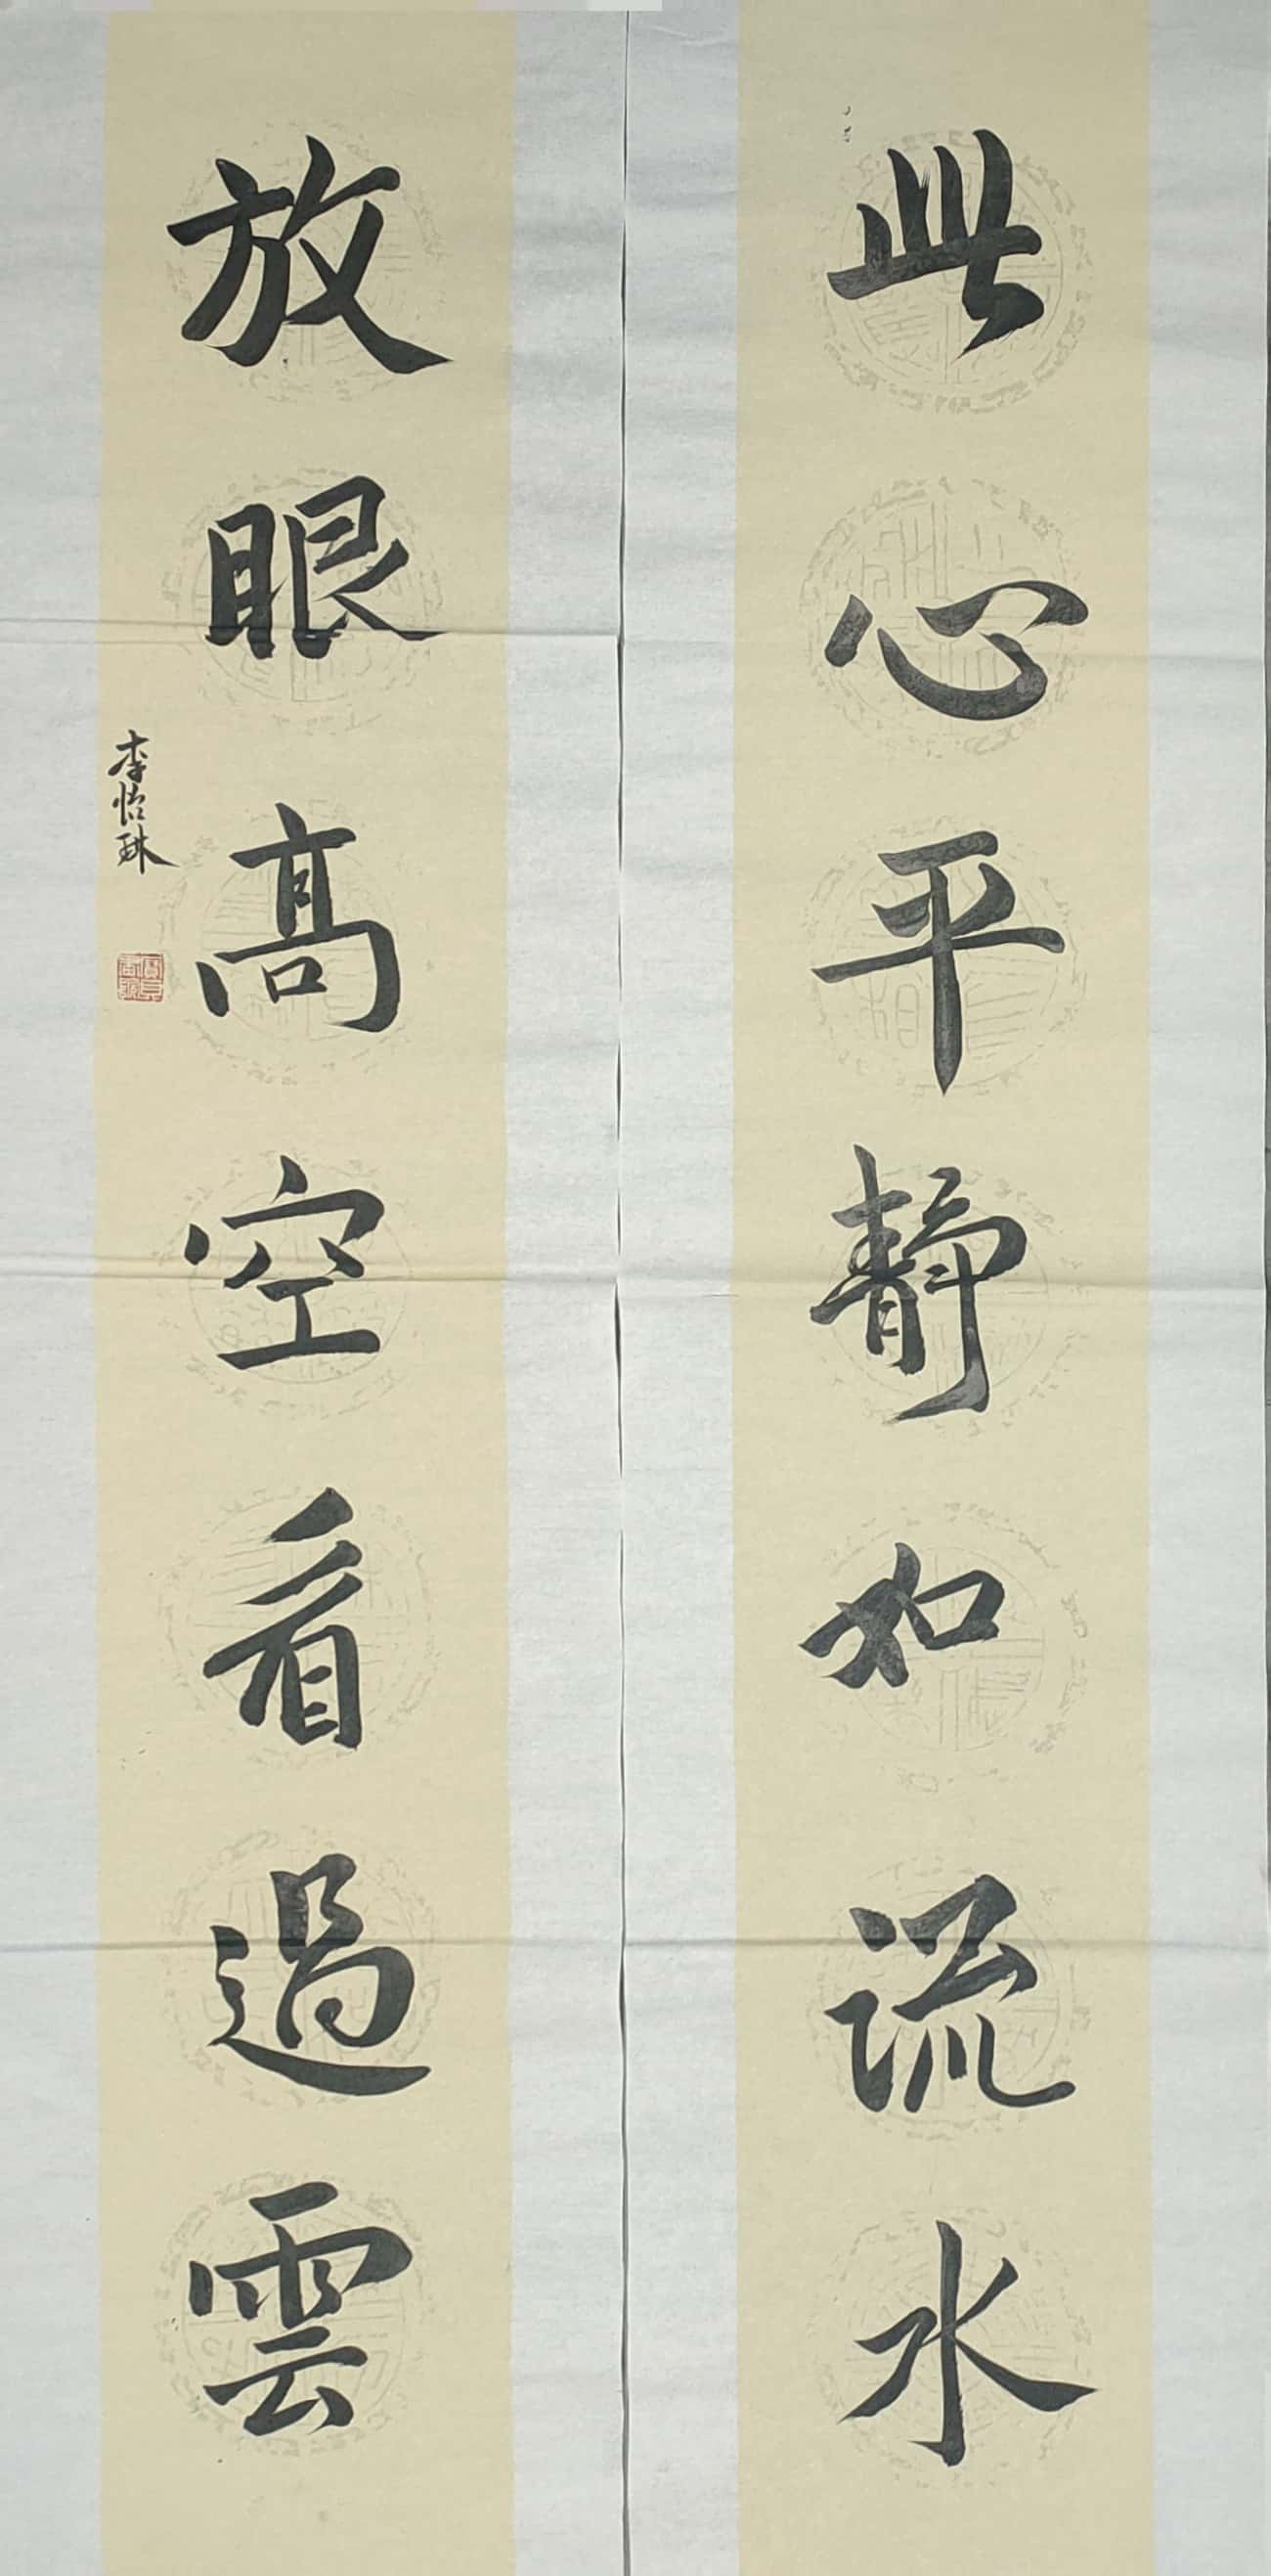 此心平靜如流水
放眼高空看過雲
李怡琳